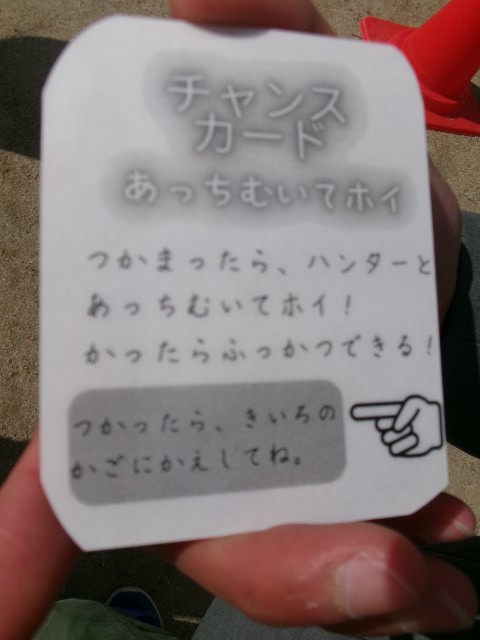 チャンス
カード
あっちむいてホイ
つかまったら、ハンターと
あっちむいてホイ！
かったらふっかつできる！
つかったら、きいろの
かごにかえしてね。